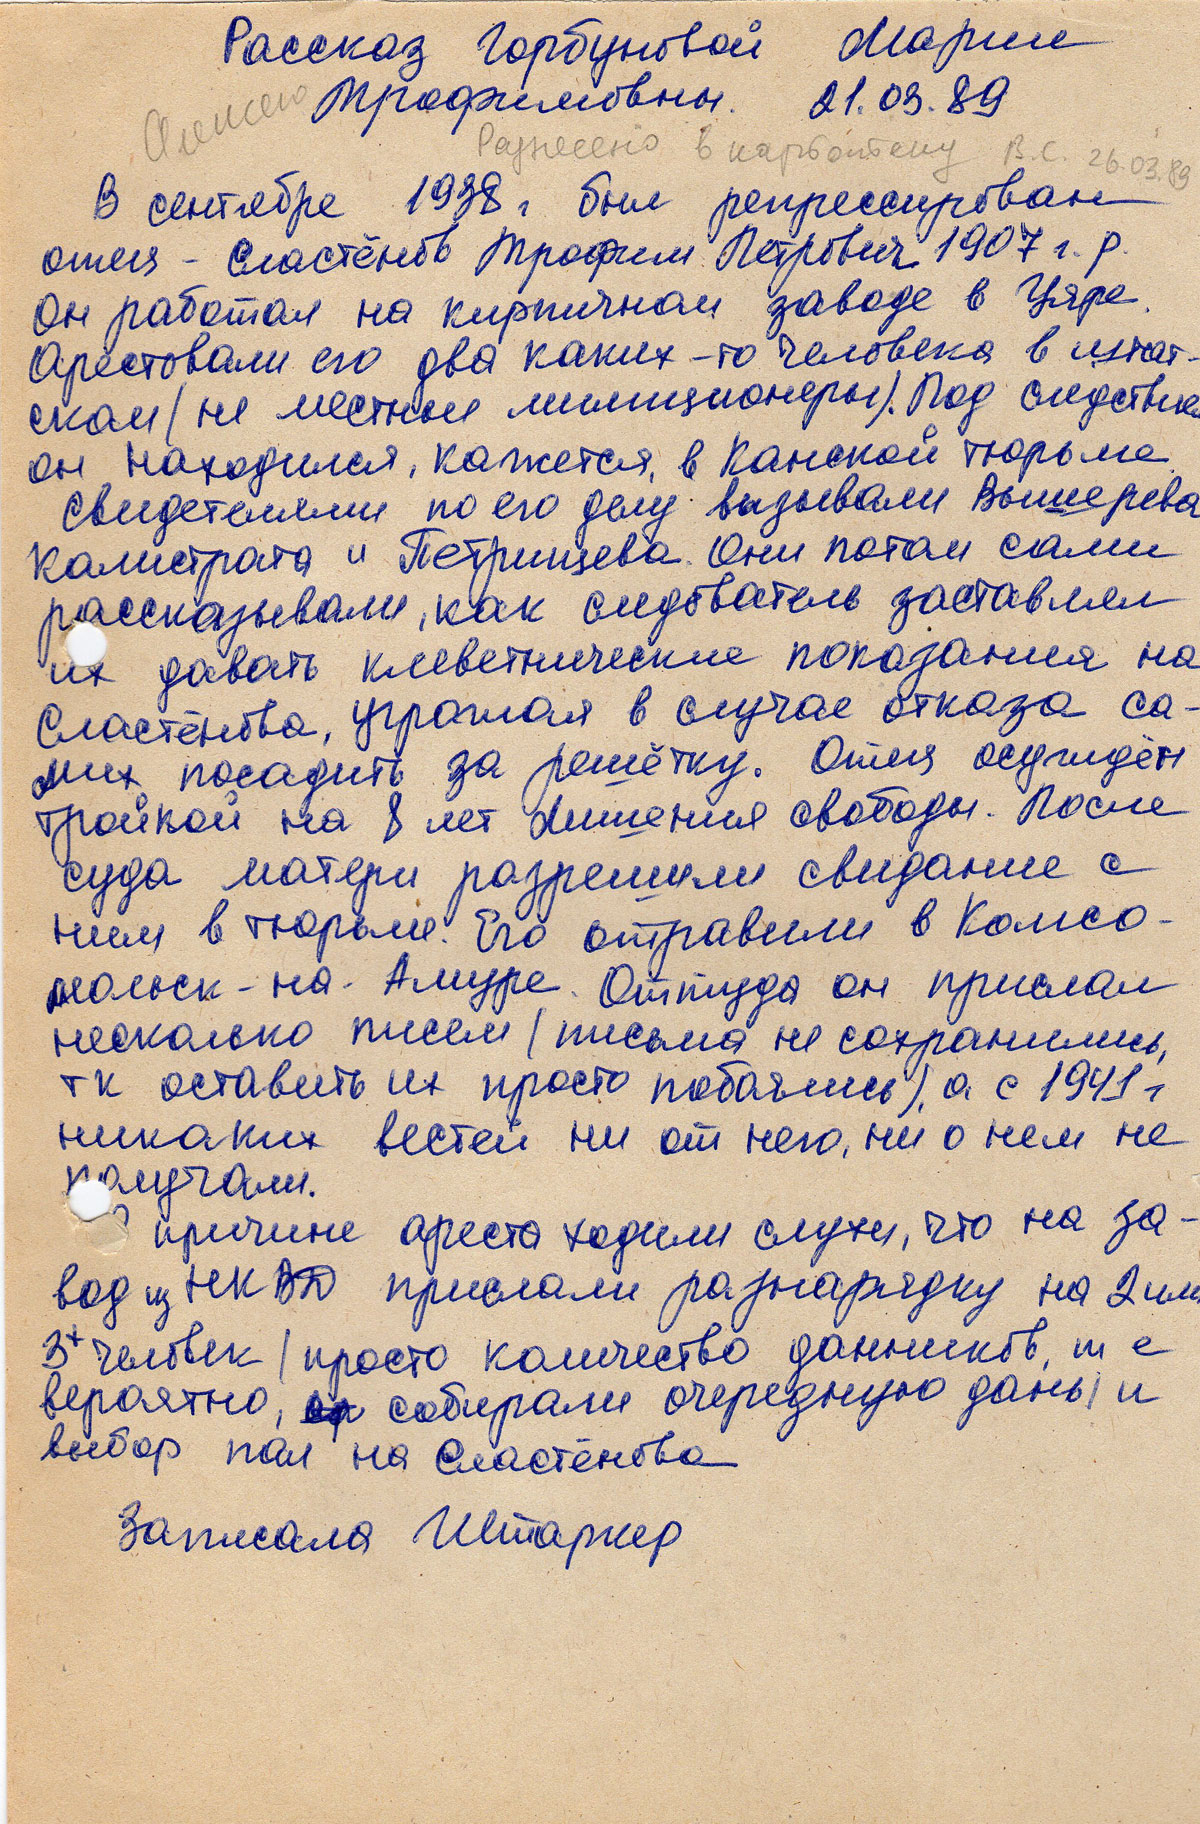 Рассказ Горбуновой Марии
Трофимовны. 21.03.89
Разнесено в картотеку В.С. 26.03.89
В сентябре 1938 г был репрессирован
отец - Сластёнов Трофим Петрович 1907 г.р.
Он работал на кирпичном заводе в Уяре.
Арестовали его два каких-то человека в штат-
ском (не местные милиционеры). Под следствием
он находился, кажется, в Канской тюрьме.
Свидетелями по его делу вызывали Вышерева
Калистрата и Петрищева. Они потом сами
рассказывали, как следователь заставлял
их давать клеветнические показания на
Сластёнова, угрожая в случае отказа са-
мих посадить за решётку. Отец осуждён
тройкой на 8 лет лишения свободы. После
суда матери разрешили свидание с
ним в тюрьме. Его отправили в Комсо-
мольск-на-Амуре. Оттуда он прислал
несколько писем (письма не сохранились,
тк оставить их просто побоялись), а с 1941 г
никаких вестей ни от него, ни о нем не
получали.
О причине ареста ходили слухи, что на за-
вод из НКВД прислали разнарядку на 2 или
3х человек (просто количество данников, т е
вероятно, собирали очередную дань) и
выбор пал на Сластёнова
Записала Штаркер